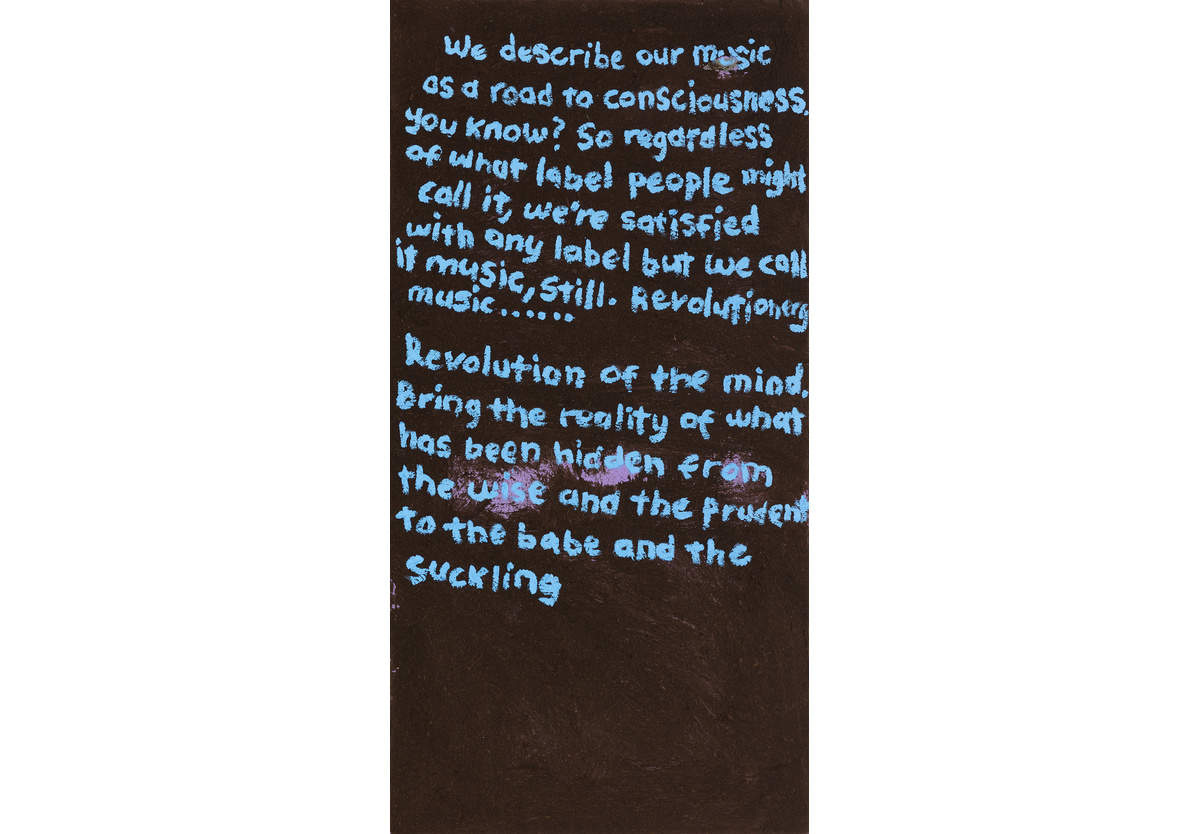 We describe our music
as a road to consciousness,
you know? So regardless
of what label people might
call it, we're satisfied
with any label but we call
it music, still. Revolutionerg
music......
Revolution of the mind.
Bring the reality of what
has been hidden from
the wise and the prudent
to the babe and the
suckling